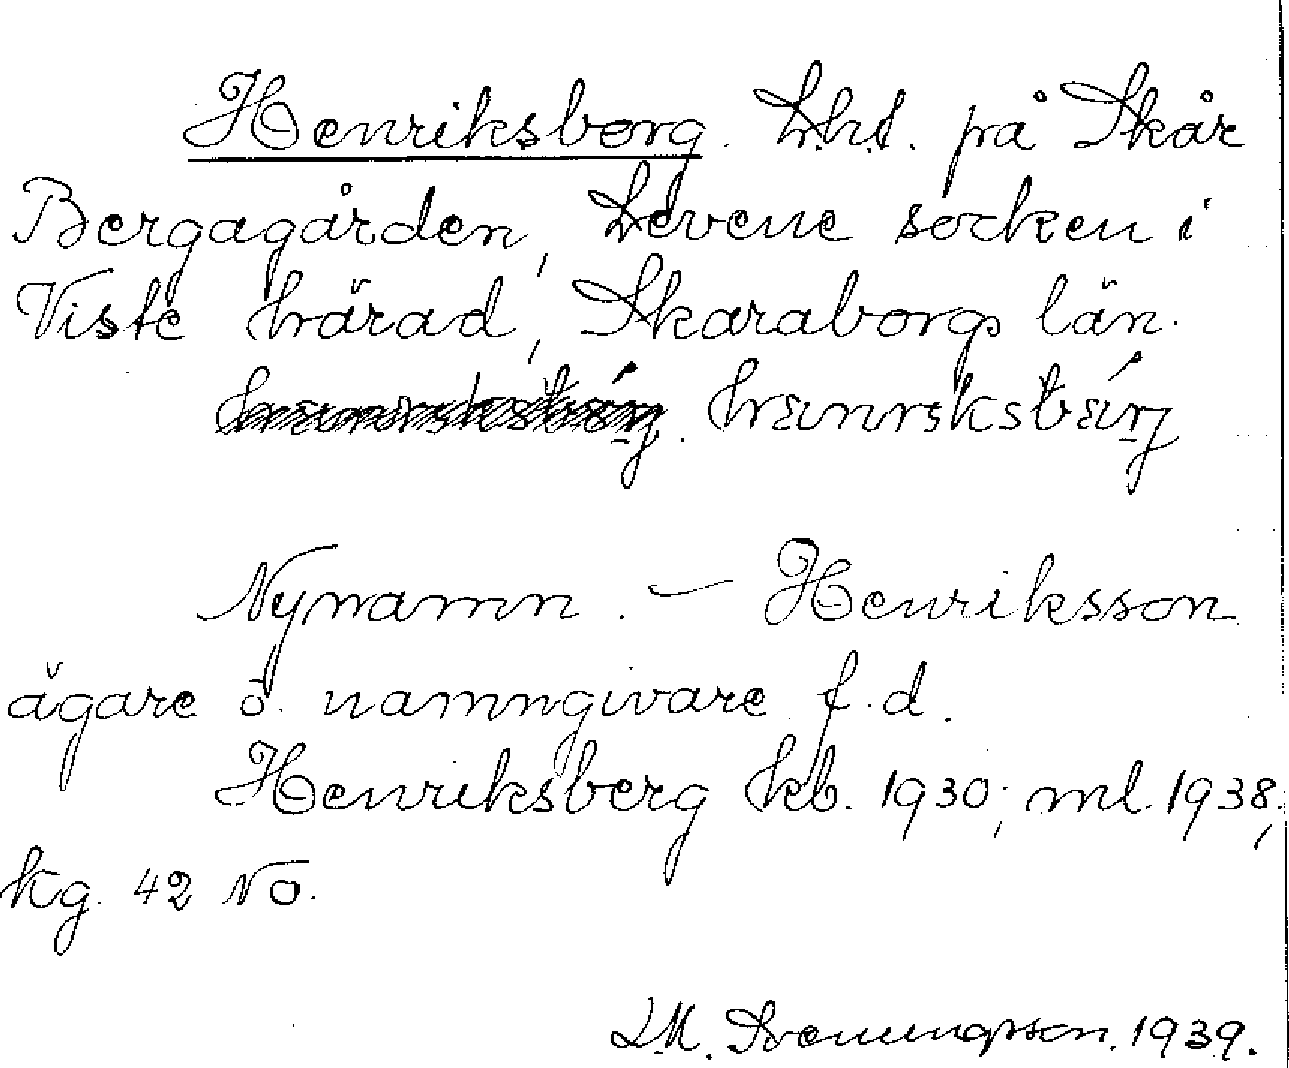 Henriksborg. L.h.t. på Skår
Bergagården, Levene socken i
Viste härad, Skaraborgs län.
hænriksbárj
Nynamn. — Henriksson
ägare o. namngivare f.d.
Henriksberg kb. 1930; ml. 1938;
kg. 42 NO.
L.M. Svenungsson. 1939.